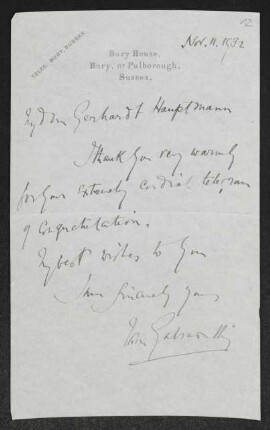 12
Nov. 11. 1932
TELEG. BURY, SUSSEX.
Bury House,
Bury, Nr Pulborough,
Sussex.
My dear Gerhardt Hauptmann
Thank you very warmly
for your extremely cordial telegram
of congratulation.
My best wishes to you
Sincerely yours
John Galsworthy